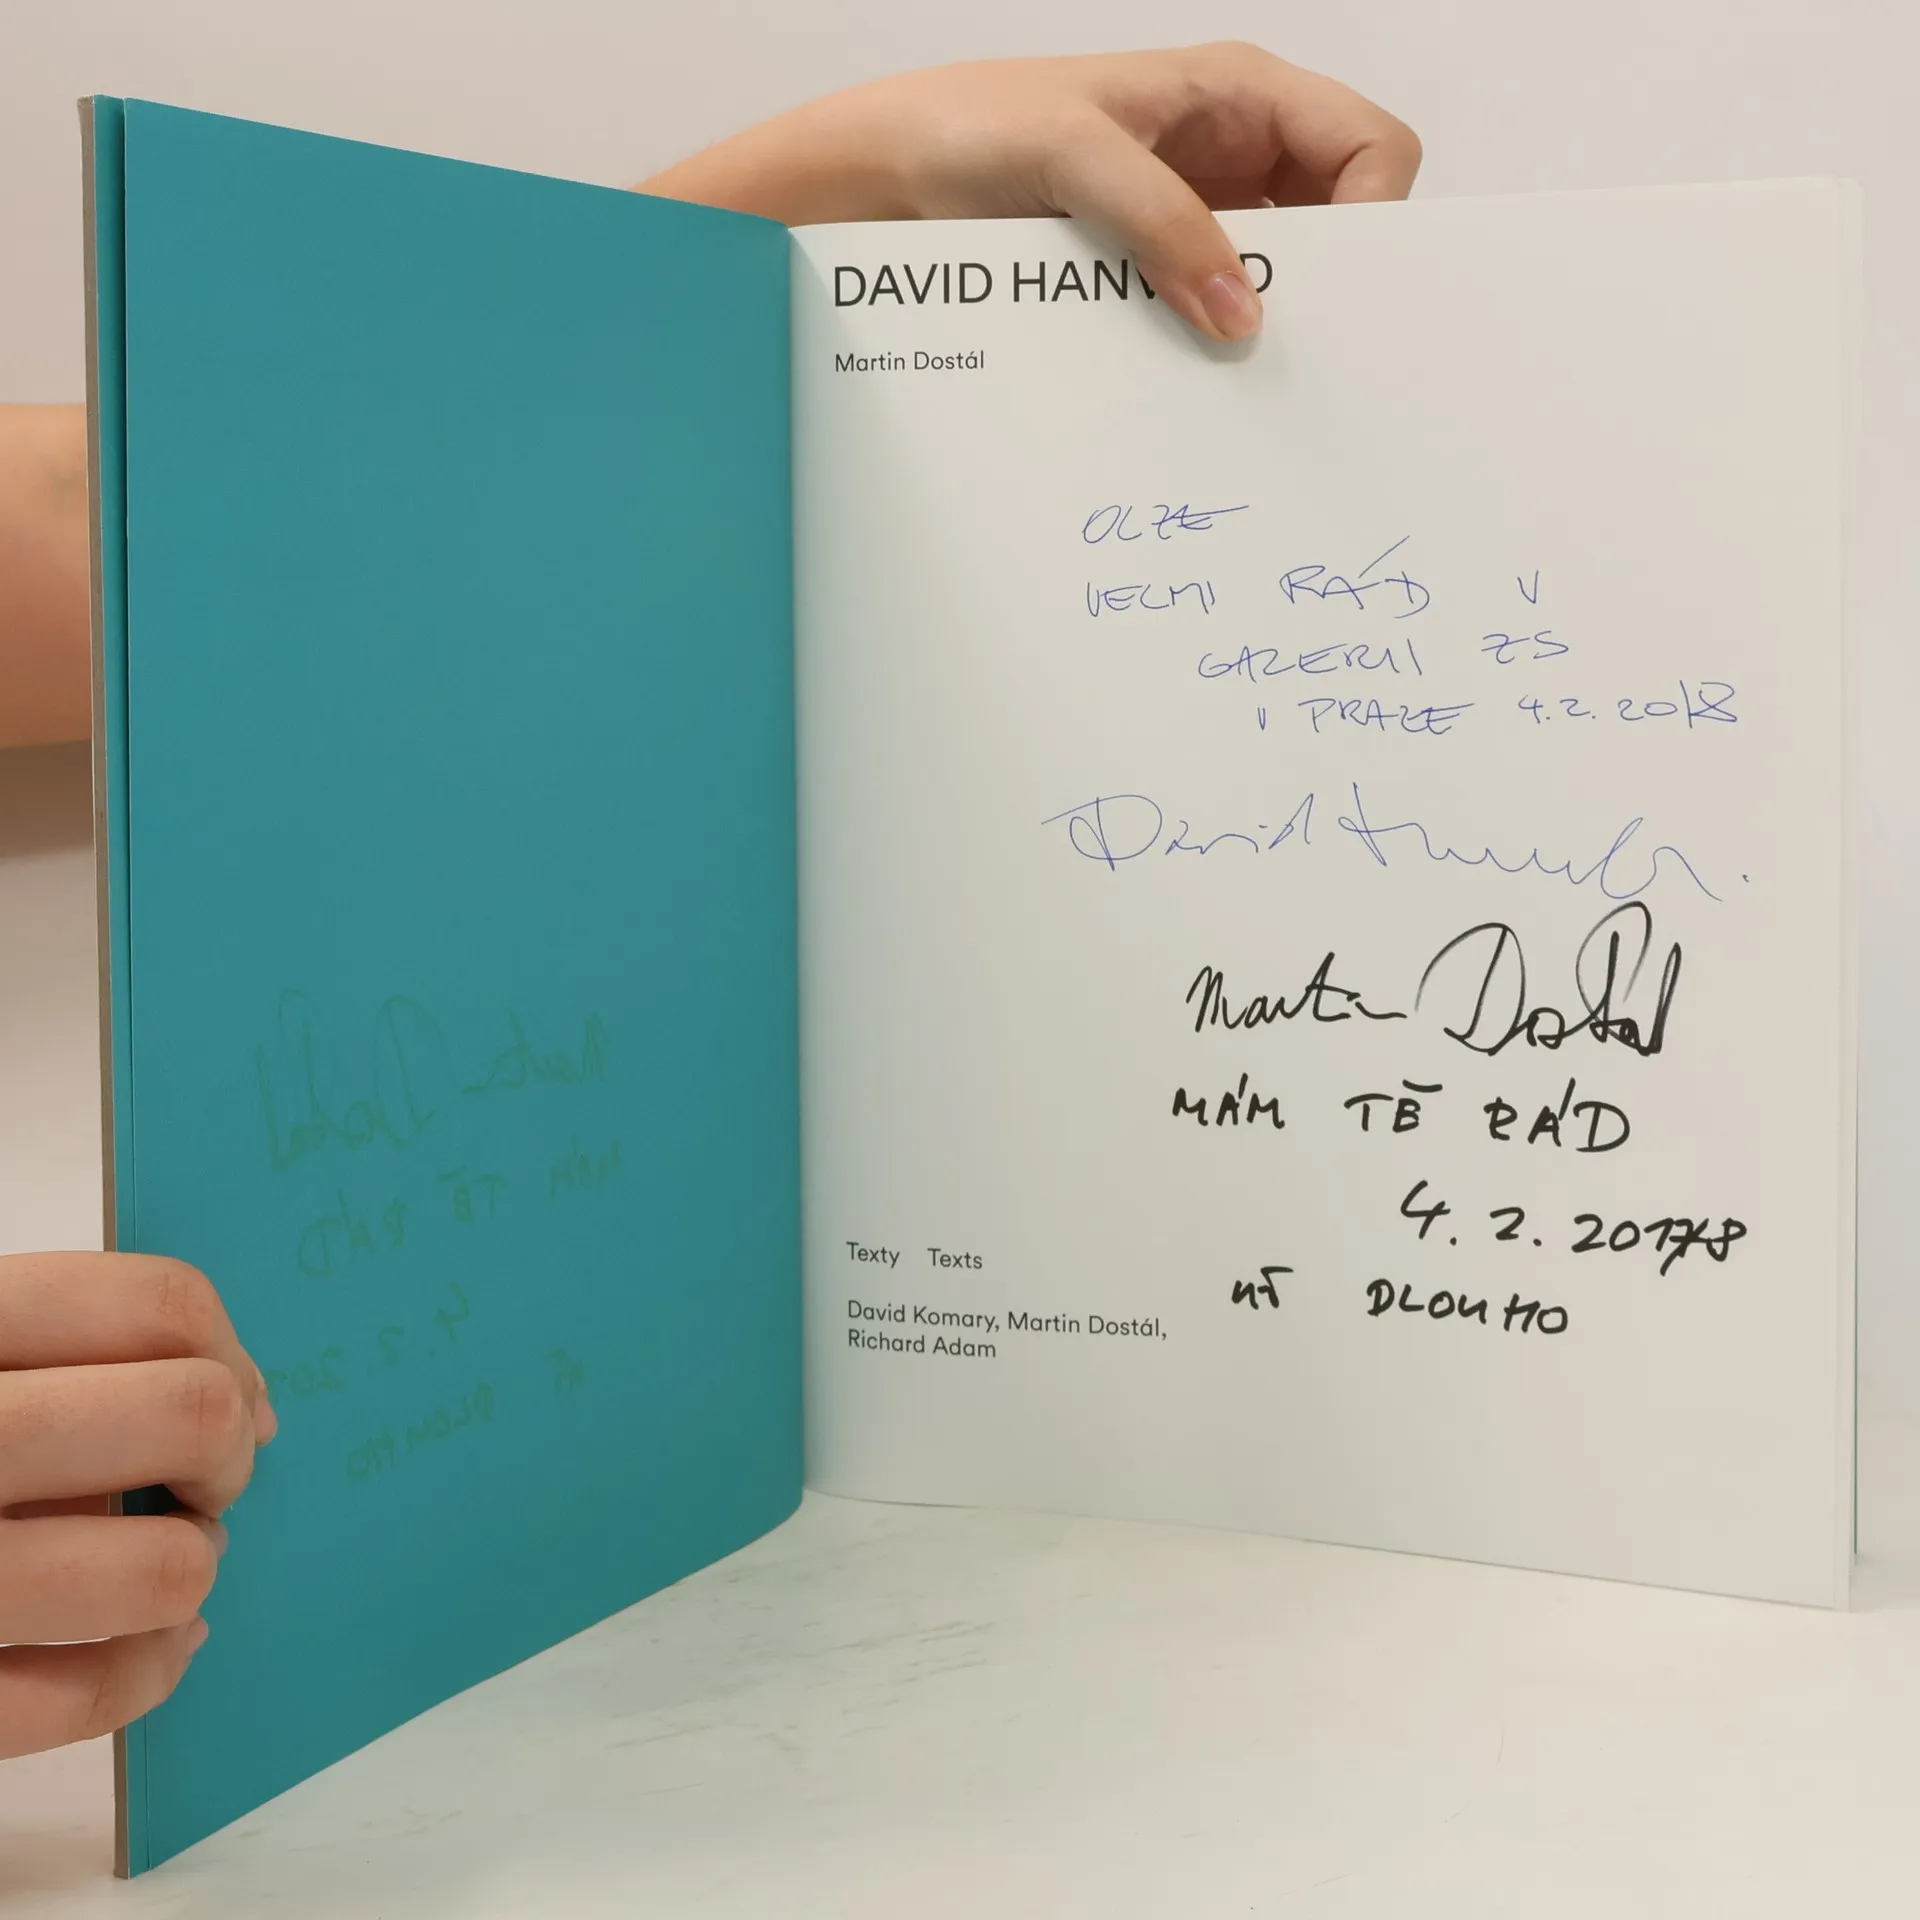 DAVID HANV D
Martin Dostál
OLZE
VELMI RÁD V
GALERII ZS
V PRAZE 4.2.2018
David
Martin Dostál
MÁM TĚ RÁD
4. 2. 20178
UŽ DLOUHO
Texty Texts
David Komary, Martin Dostál,
Richard Adam